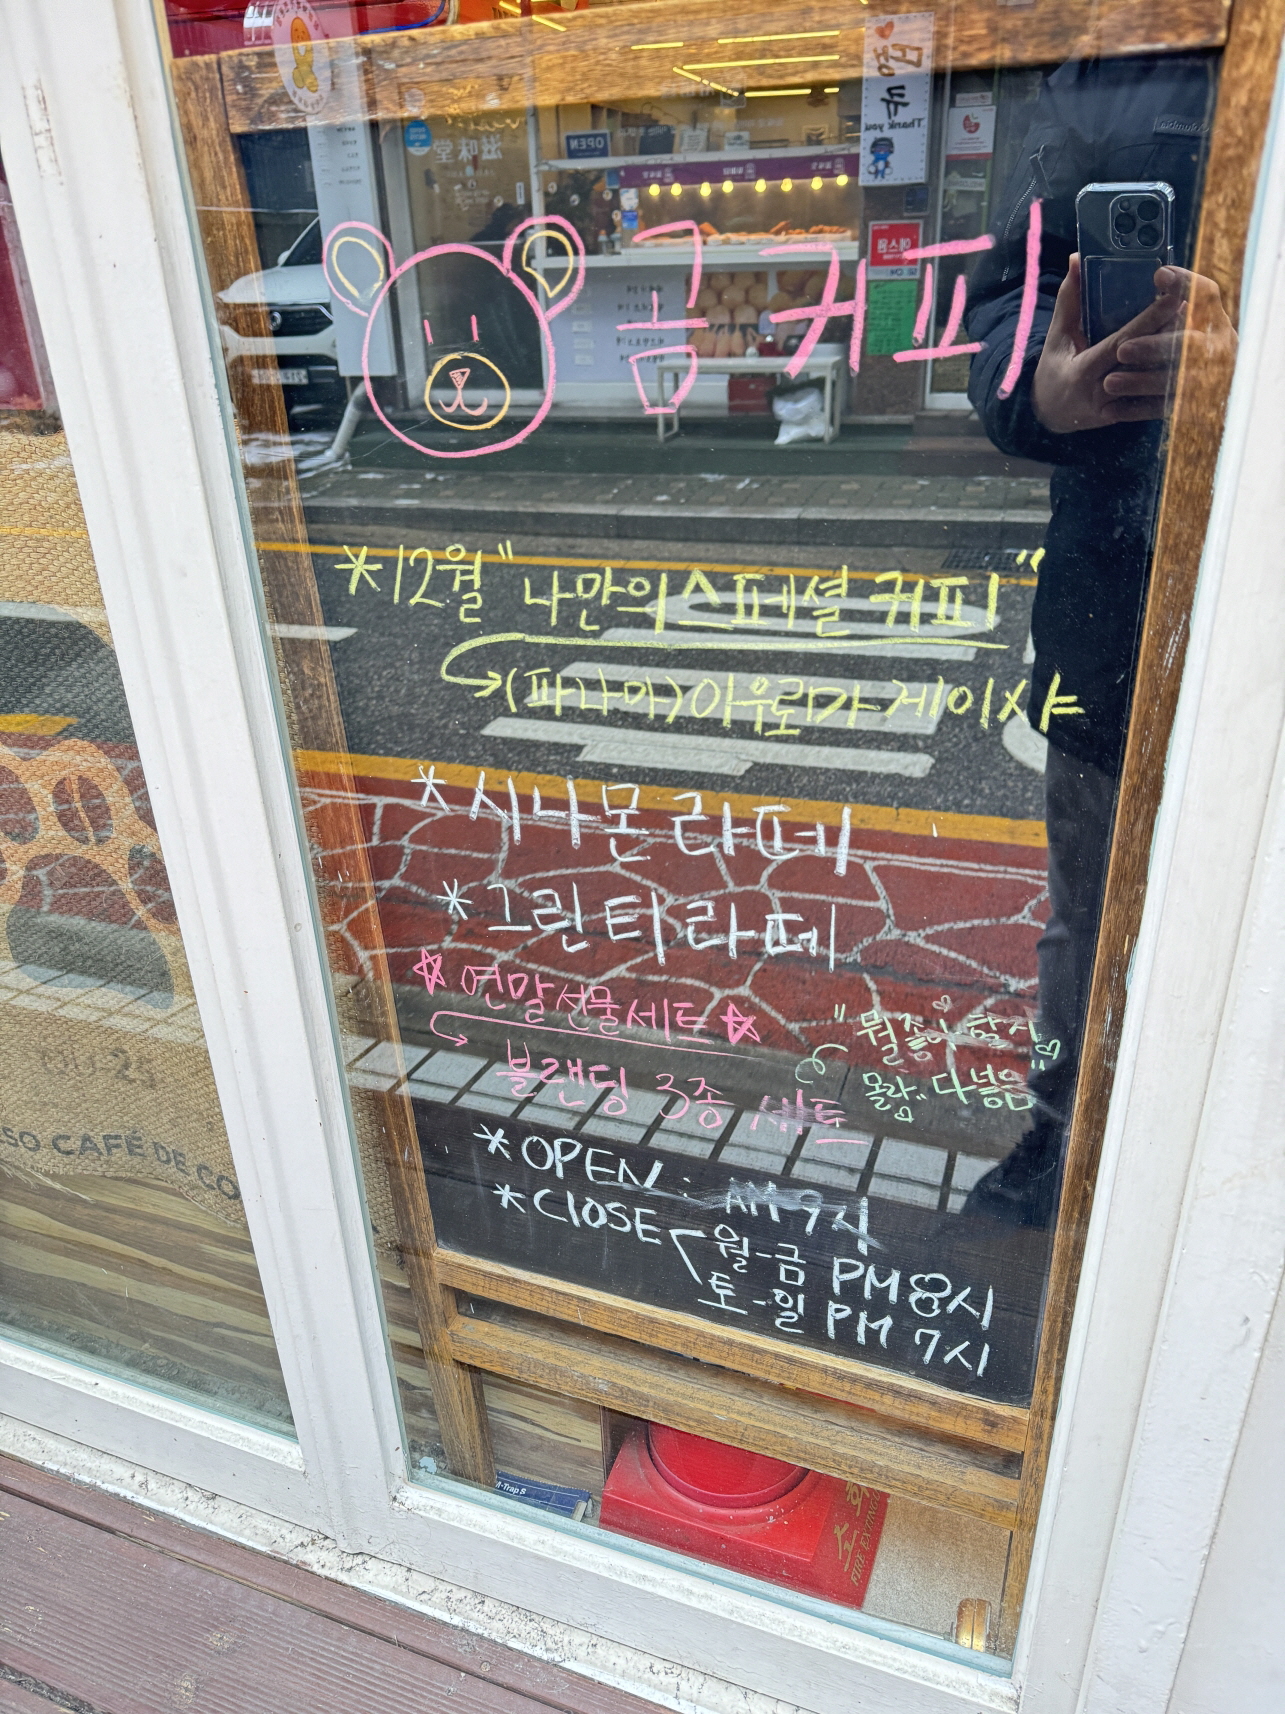 곰커피
*12월 "나만의 스페셜 커피"
(파나마)아우로마 게이샤
*시나몬 라떼
*그린티 라떼
☆연말선물세트☆
블랜딩 3종 세트
"뭘좋아할지
몰라 다넣음"
*OPEN : AM 9시
*CLOSE 월-금 PM 8시
토-일 PM 7시
Thank you
OPEN
滋味堂
SO CAFÉ DE CO
M-Trap S
소화
FIRE EXTING